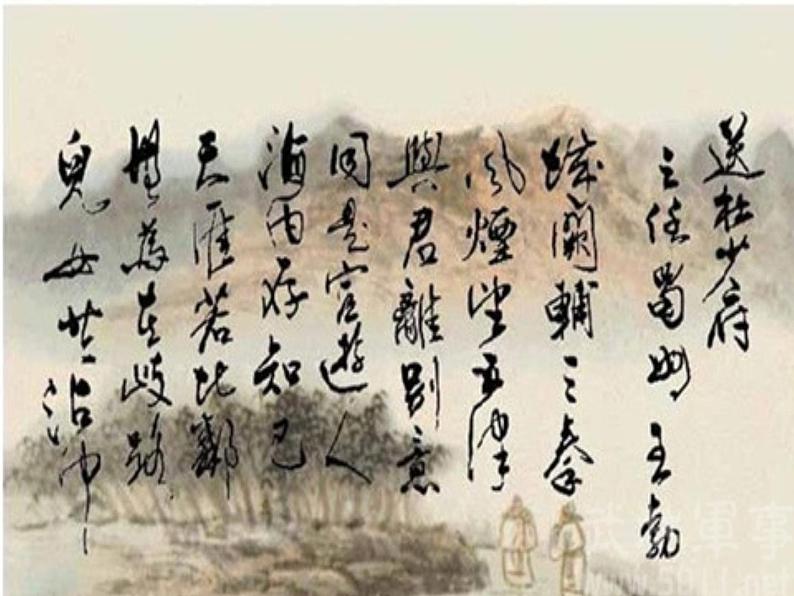 送杜少府
之任蜀州 王勃
城闕輔三秦
風煙望五津
與君離別意
同是宦遊人
海內存知己
天涯若比鄰
無為在歧路
兒女共沾巾
軍事